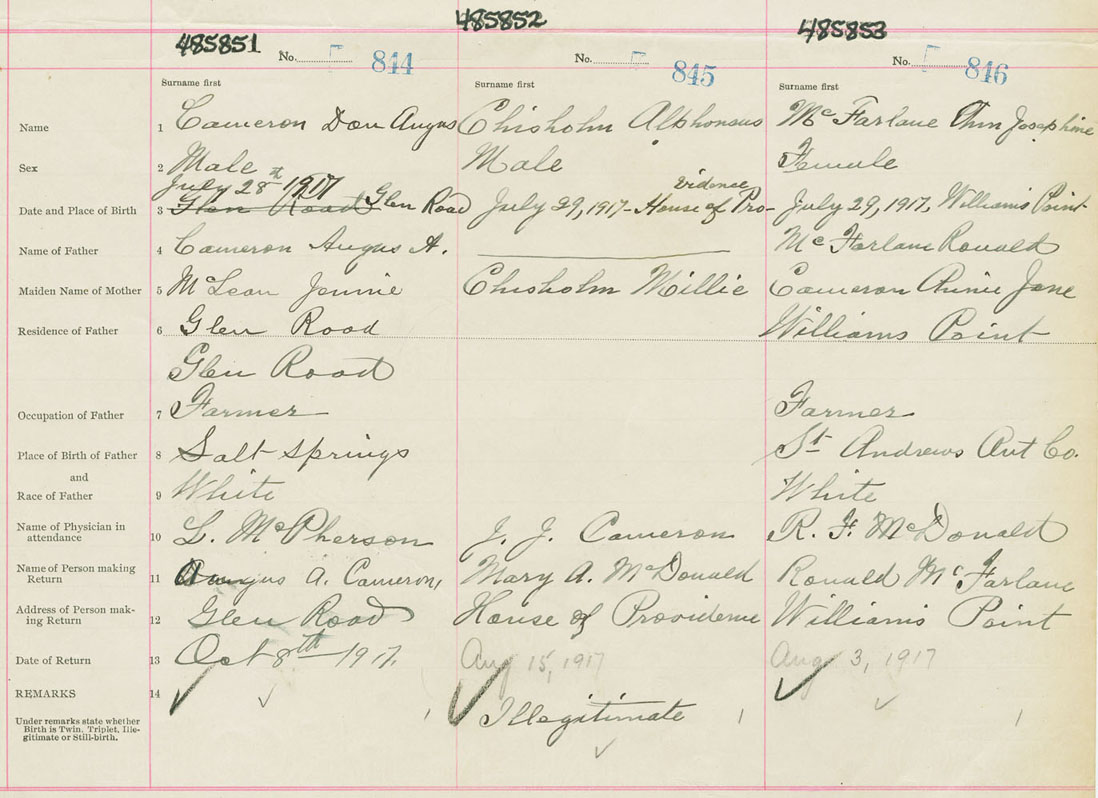 485851 485852 485853
No. 844 No. 845 No. 846
Surname first Surname first Surname first
Name 1 Cameron Dan Angus Chisholm Alphonsus McFarlane Ann Josephine
Sex 2 Male Male Female
July 28th 1917 vidence
Date and Place of Birth 3 Glen Road Glen Road July 29, 1917 - House of Pro- July 29, 1917, Williams Point
Name of Father 4 Cameron Angus A. McFarlane Ronald
Maiden Name of Mother 5 McLean Jennie Chisholm Millie Cameron Annie Jane
Residence of Father 6 Glen Road Williams Point
Glen Road
Occupation of Father 7 Farmer Farmer
Place of Birth of Father 8 Salt Springs St. Andrews Ant Co.
and
Race of Father 9 White White
Name of Physician in
attendance 10 L. McPherson J. J. Cameron R. F. McDonald
Name of Person making
Return 11 Angus A. Cameron, Mary A. McDonald Ronald McFarlane
Address of Person mak-
ing Return 12 Glen Road House of Providence Williams Point
Date of Return 13 Oct 8th - 1917. Aug 15, 1917 Aug 3, 1917
REMARKS 14
Illegitimate
Under remarks state whether
Birth is Twin, Triplet, Ille-
gitimate or Still-birth.